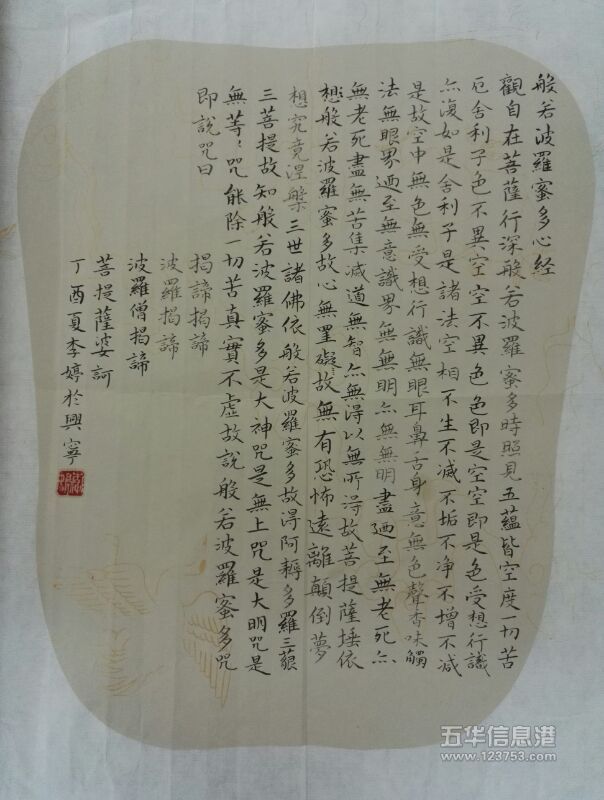 般若波羅蜜多心经
觀自在菩薩行深般若波羅蜜多時照見五蘊皆空度一切苦
厄舍利子色不異空空不異色色即是空空即是色受想行識
亦復如是舍利子是諸法空相不生不滅不垢不净不增不减
是故空中無色無受想行識無眼耳鼻舌身意無色聲香味觸
法無眼界迺至無意識界無無明亦無無明盡迺至無老死亦
無老死盡無苦集滅道無智亦無得以無所得故菩提薩埵依
想般若波羅蜜多故心無罣礙故無有恐怖遠離顛倒夢
想究竟涅槃三世諸佛依般若波羅蜜多故得阿耨多羅三藐
三菩提故知般若波羅蜜多是大神咒是無上咒是大明咒是
無等〻咒能除一切苦真實不虛故說般若波羅蜜多咒
即說咒曰
揭諦揭諦
波羅揭諦
波羅僧揭諦
菩提薩婆訶
丁酉夏李婷於興寧
五华信息港
www.123753.com